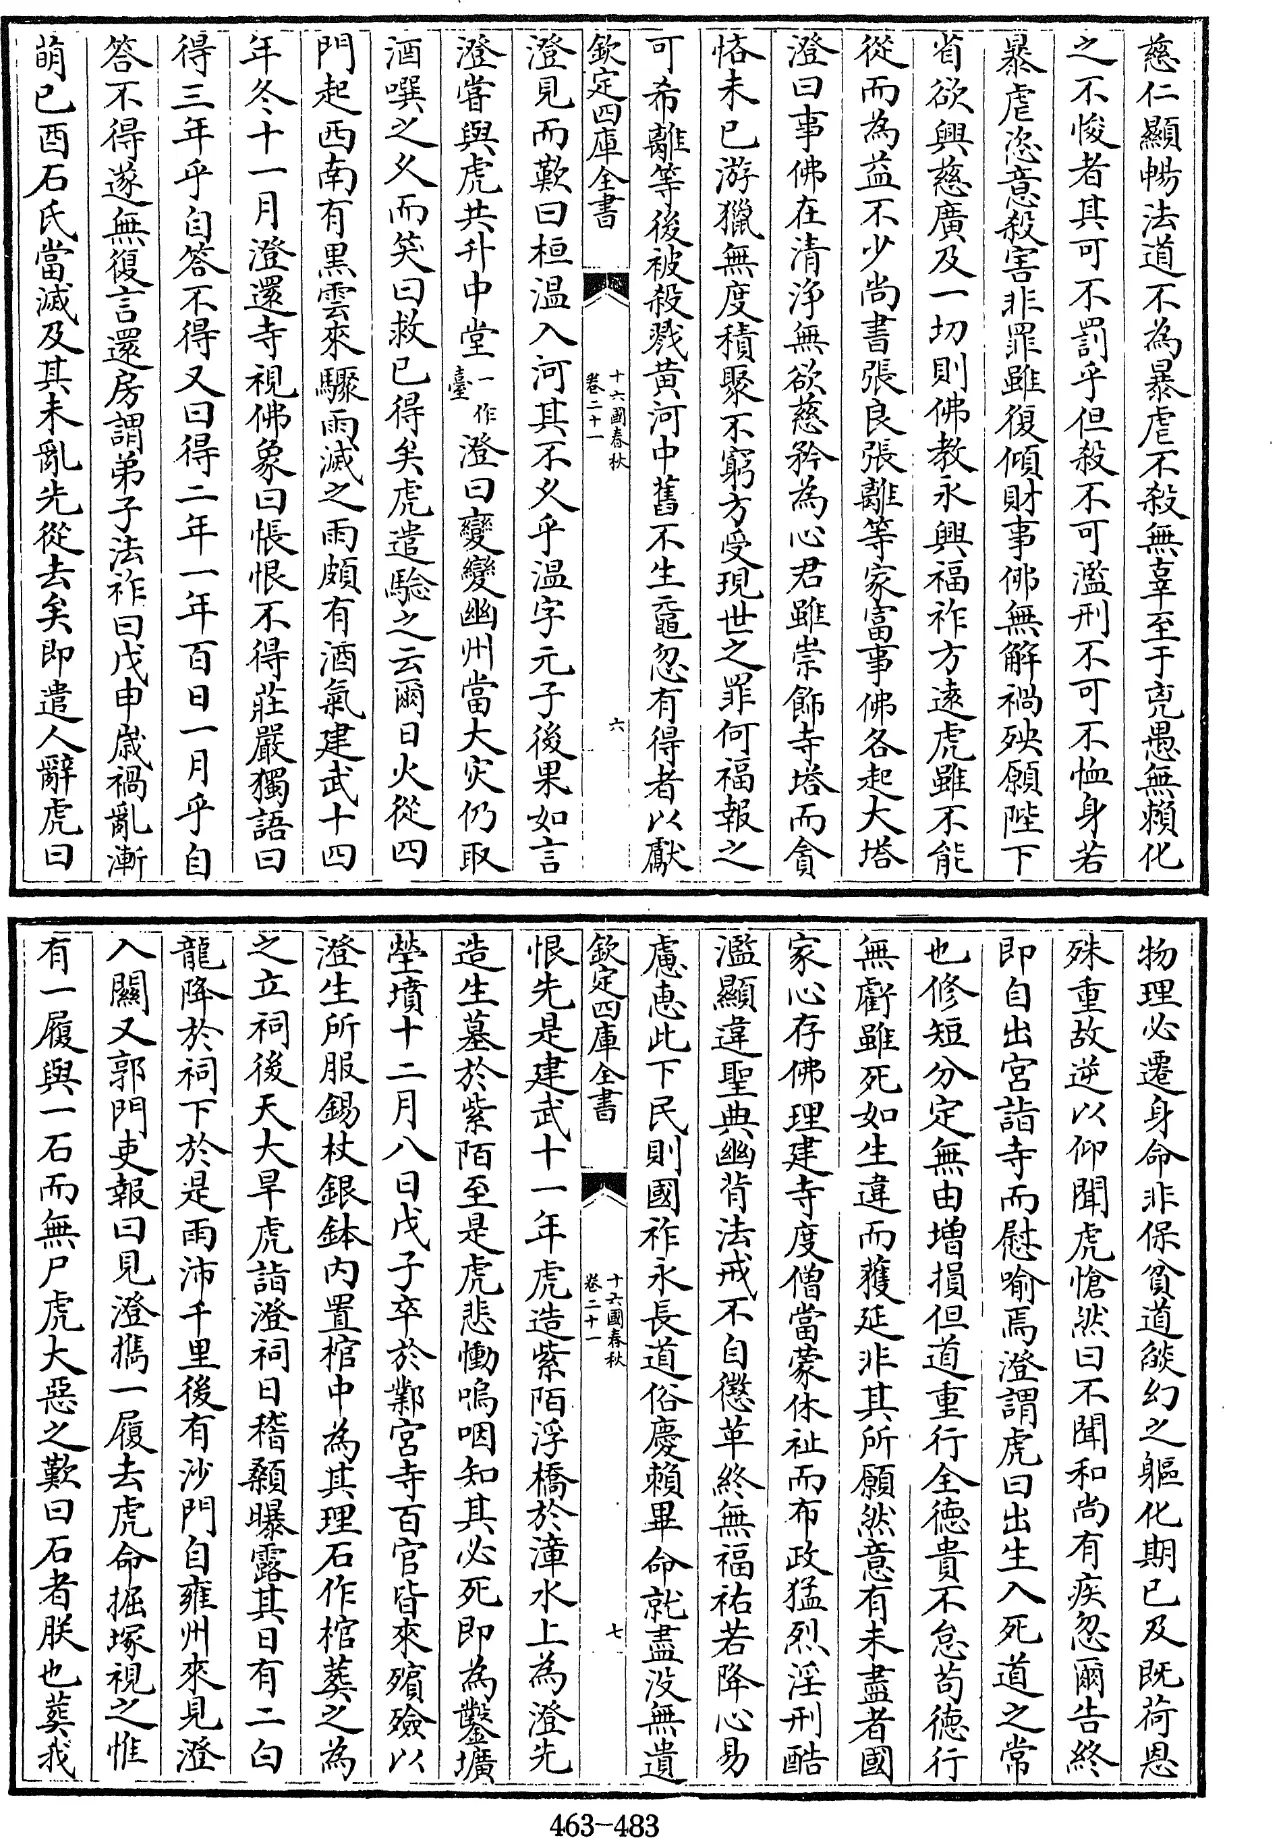 慈仁顯暢法道不為暴虐不殺無辜至于兇愚無賴化
之不悛者其可不罰乎但殺不可濫刑不可不恤身若
暴虐恣意殺害非罪雖復傾財事佛無解禍殃願陛下
省欲興慈廣及一切則佛教永興福祚方遠虎雖不能
從而為益不少尚書張良張離等家富事佛各起大塔
澄曰事佛在清淨無欲慈矜為心君雖崇飾寺塔而貪
悋未已游獵無度積聚不窮方受現世之罪何福報之
可希離等後被殺戮黃河中舊不生黿忽有得者以獻
欽定四庫全書
十六國春秋
卷二十一
六
澄見而歎曰桓温入河其不久乎温字元子後果如言
澄嘗與虎共升中堂一作臺澄曰變變幽州當大灾仍取
酒噀之久而笑曰救已得矣虎遣驗之云爾日火從四
門起西南有黑雲來驟雨滅之雨頗有酒氣建武十四
年冬十一月澄還寺視佛象曰悵恨不得莊嚴獨語曰
得三年乎自答不得又曰得二年一年百日一月乎自
答不得遂無復言還房謂弟子法祚曰戊申歲禍亂漸
萌已酉石氏當滅及其未亂先從去矣即遣人辭虎曰
物理必遷身命非保貧道燄幻之軀化期已及既荷恩
殊重故逆以仰聞虎愴然曰不聞和尚有疾忽爾告終
即自出宮詣寺而慰喻焉澄謂虎曰出生入死道之常
也修短分定無由增損但道重行全德貴不怠苟德行
無虧雖死如生違而獲延非其所願然意有未盡者國
家心存佛理建寺度僧當蒙休祉而布政猛烈淫刑酷
濫顯違聖典幽背法戒不自懲革終無福祐若降心易
慮惠此下民則國祚永長道俗慶賴畢命就盡沒無遺
欽定四庫全書
十六國春秋
卷二十一
七
恨先是建武十一年虎造紫陌浮橋於漳水上為澄先
造生墓於紫陌至是虎悲慟嗚咽知其必死即為鑿壙
塋墳十二月八日戊子卒於鄴宮寺百官皆來殯殮以
澄生所服錫杖銀鉢内置棺中為其理石作棺葬之為
之立祠後天大旱虎詣澄祠日稽顙曝露其日有二白
龍降於祠下於是雨沛千里後有沙門自雍州來見澄
入關又郭門吏報曰見澄携一履去虎命掘塚視之惟
有一履與一石而無尸虎大惡之歎曰石者朕也葬我
463-483